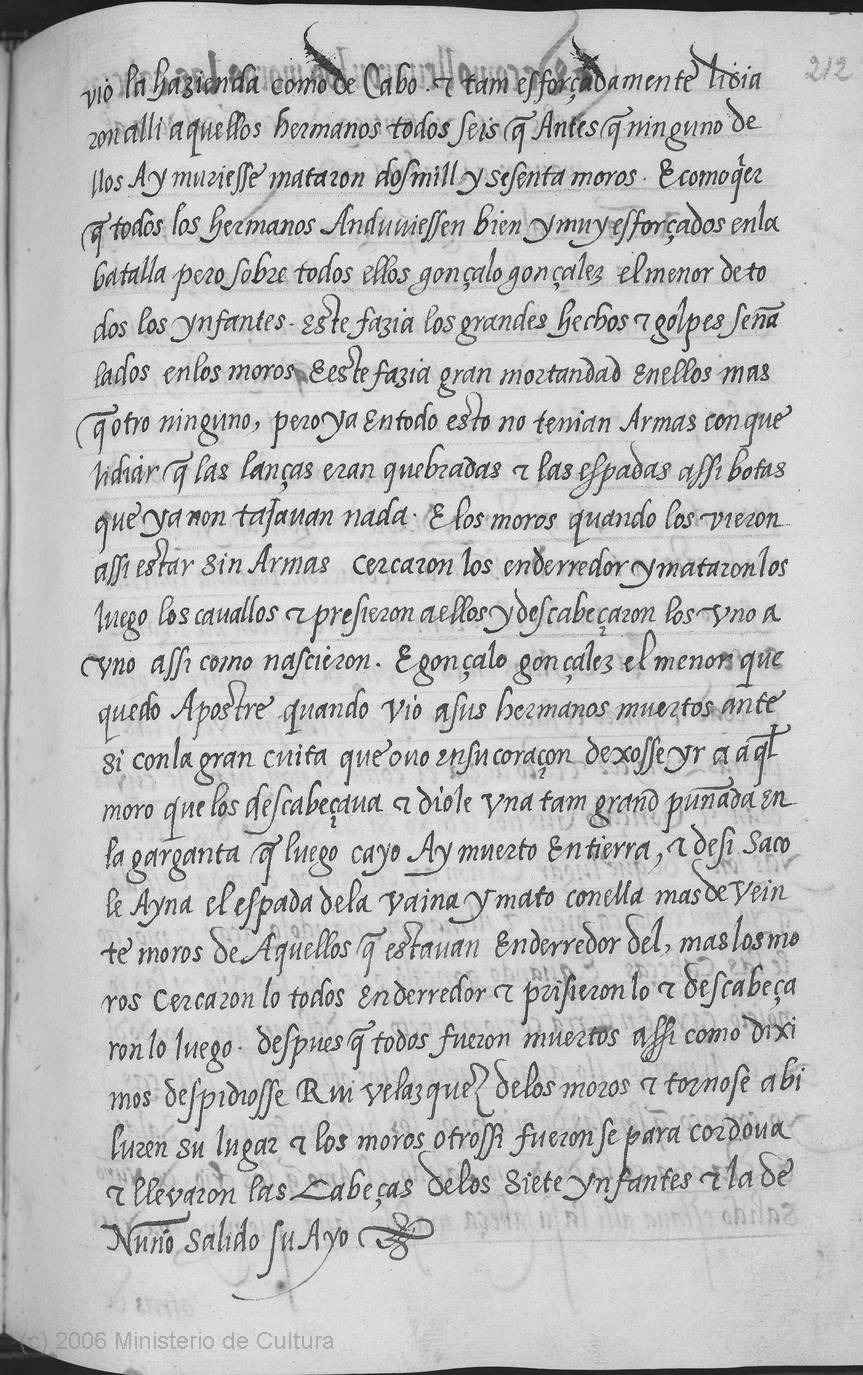 212
vio la hazienda como de Cabo · & tam esforçadamente lidia
ron alli aquellos hermanos todos seis q̃ Antes q̃ ninguno de
llos Ay muriesse mataron dos mill y sesenta moros · E como q̃er
q̃ todos los hermanos Anduuiessen bien y muy esforçados en la
batalla pero sobre todos ellos gonçalo gonçalez el menor de to
dos los ynfantes · Este fazia los grandes hechos & golpes señа
lados en los moros, E este fazia gran mortandad En ellos mas
q̃ otro ninguno, pero ya En todo esto no tenian Armas con que
lidiar q̃ las lanças eran quebradas & las espadas assi botas
que ya non tajauan nada · E los moros quando los vieron
assi estar Sin Armas Cercaron los enderredor y mataron los
luego los cauallos & presieron a ellos y descabeçaron los vno a
vno assi como nascieron · E gonçalo gonçalez el menor que
quedo Apostre quando vio a sus hermanos muertos ante
Si con la gran cuita que ouo en su coraçon dexosse yr a aq̃l
moro que los descabeçaua & diole vna tam grand puñada En
la garganta q̃ luego cayo Ay muerto En tierra, & desi Saco
le Ayna el espada de la vaina y mato con ella mas de vein
te moros de Aquellos q̃ estauan Enderredor del, mas los mo
ros Cercaron lo todos Enderredor & prisieron lo & descabeça
ron lo luego · despues q̃ todos fueron muertos assi como dixi
mos despidiosse Rui velazquez de los moros & tornose a bi
luren su lugar & los moros otrossi fueron se para cordoua
& lleuaron las Cabeças de los Siete ynfantes & la de
Nuño Salido su Ayo
(c) 2006 Ministerio de Cultura